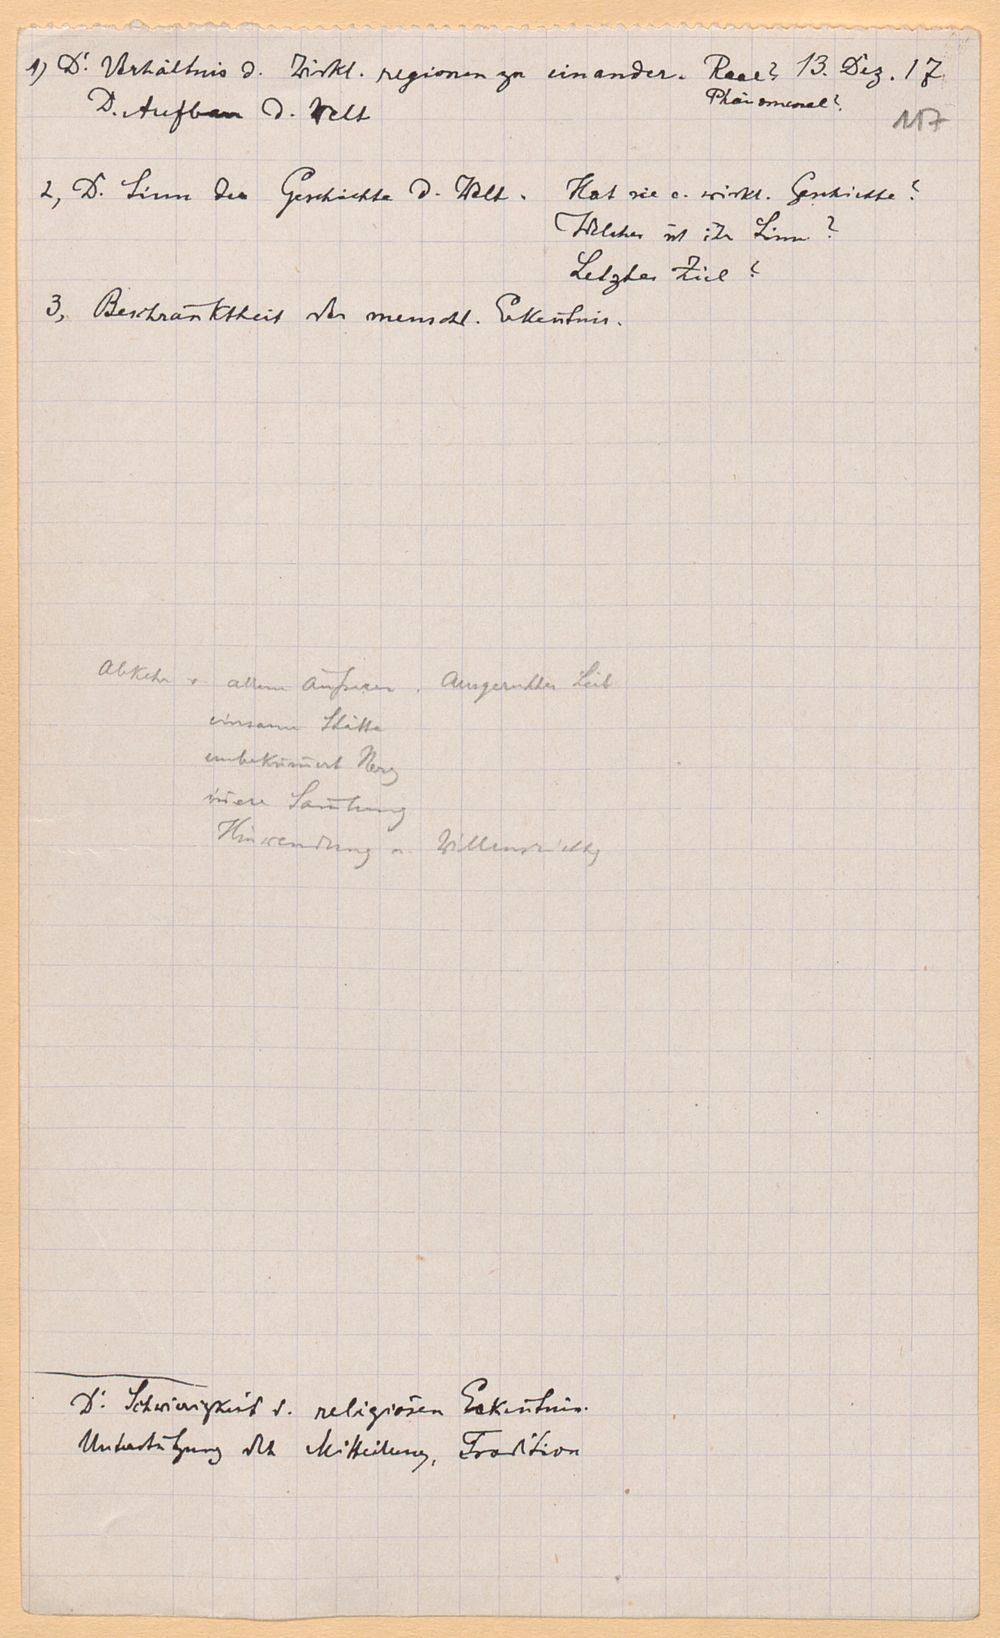 1) D. Verhältnis d. Wirkl. regionen zu einander. Real? 13. Dez. 17
D. Aufbau d. Welt Phänomenal?
117
2, D. Sinn der Geschichte d. Welt. Hat sie e. wirkl. Geschichte?
Welches ist ihr Sinn?
Letztes Ziel?
3, Beschränktheit der menschl. Erken̄tnis.
Abkehr v. allem Äußeren. Ausgeruhter Leib
einsame Stätte
unbeküm̄ert Herz
in̄ere Sam̄lung
Hinwendung u. Willensrichtg
D. Schwierigkeit d. religiösen Erken̄tnis.
Unterstützung der Mitteilung, Tradition